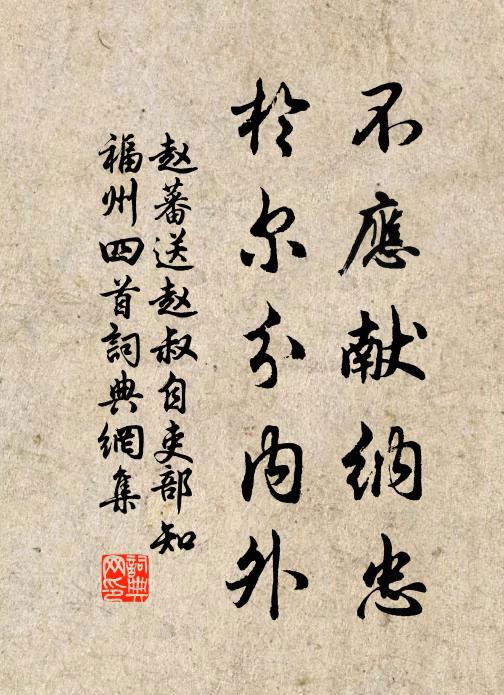 不應献納忠
於尔分内外
赵蕃送赵叔自吏部知
福州四首詞典網集
詞典
网印